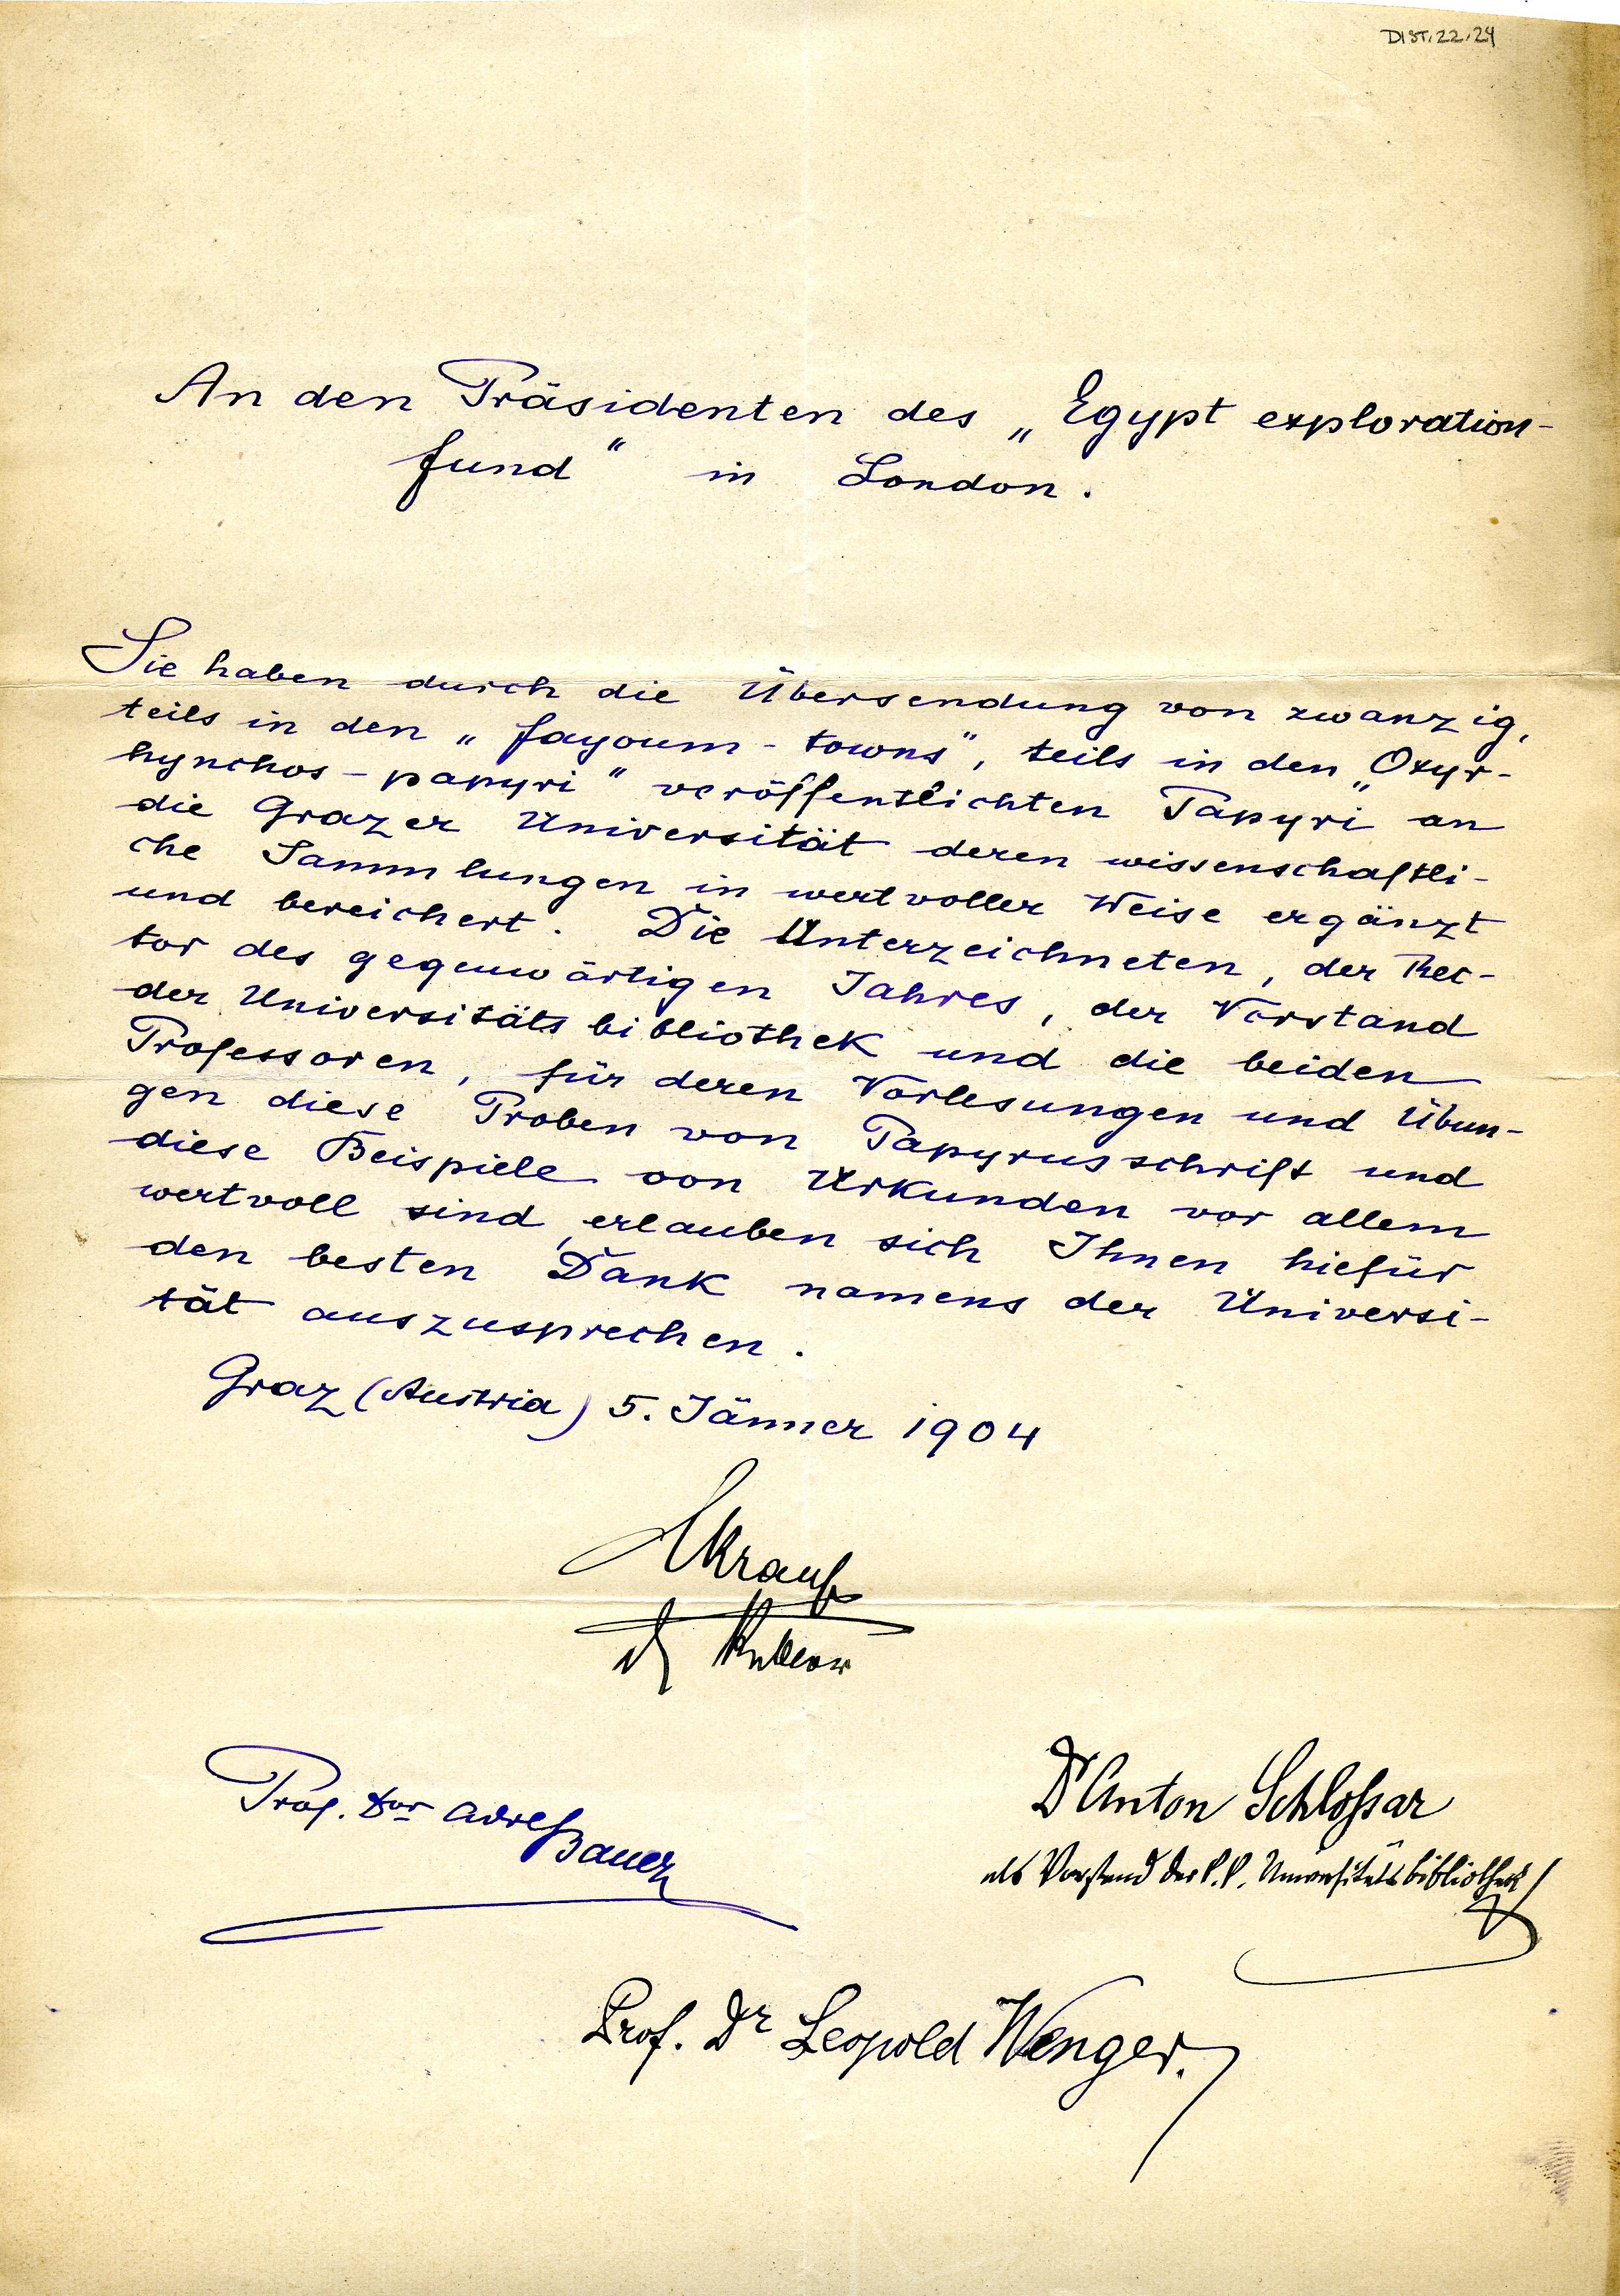 DIST.22.24
An den Präsidenten des „Egypt exploration-
fund“ in London.
Sie haben durch die Übersendung von zwanzig,
teils in den „fayoum-towns“, teils in den „Oxyr-
hynchos-papyri“ veröffentlichten Papyri an
die Grazer Universität deren wissenschaftli-
che Sammlungen in wertvoller Weise ergänzt
und bereichert. Die Unterzeichneten, der Rec-
tor des gegenwärtigen Jahres, der Vorstand
der Universitätsbibliothek und die beiden
Professoren, für deren Vorlesungen und Übun-
gen diese Proben von Papyrusschrift und
diese Beispiele von Urkunden vor allem
wertvoll sind, erlauben sich Ihnen hiefür
den besten Dank namens der Universi-
tät auszusprechen.
Graz (Austria) 5. Jänner 1904
Krauß
Prof. Dor Adolf Bauer
Dr Anton Schlossar
als Vorstand der k. k. Universitätsbibliothek
Prof. Dr Leopold Wenger.